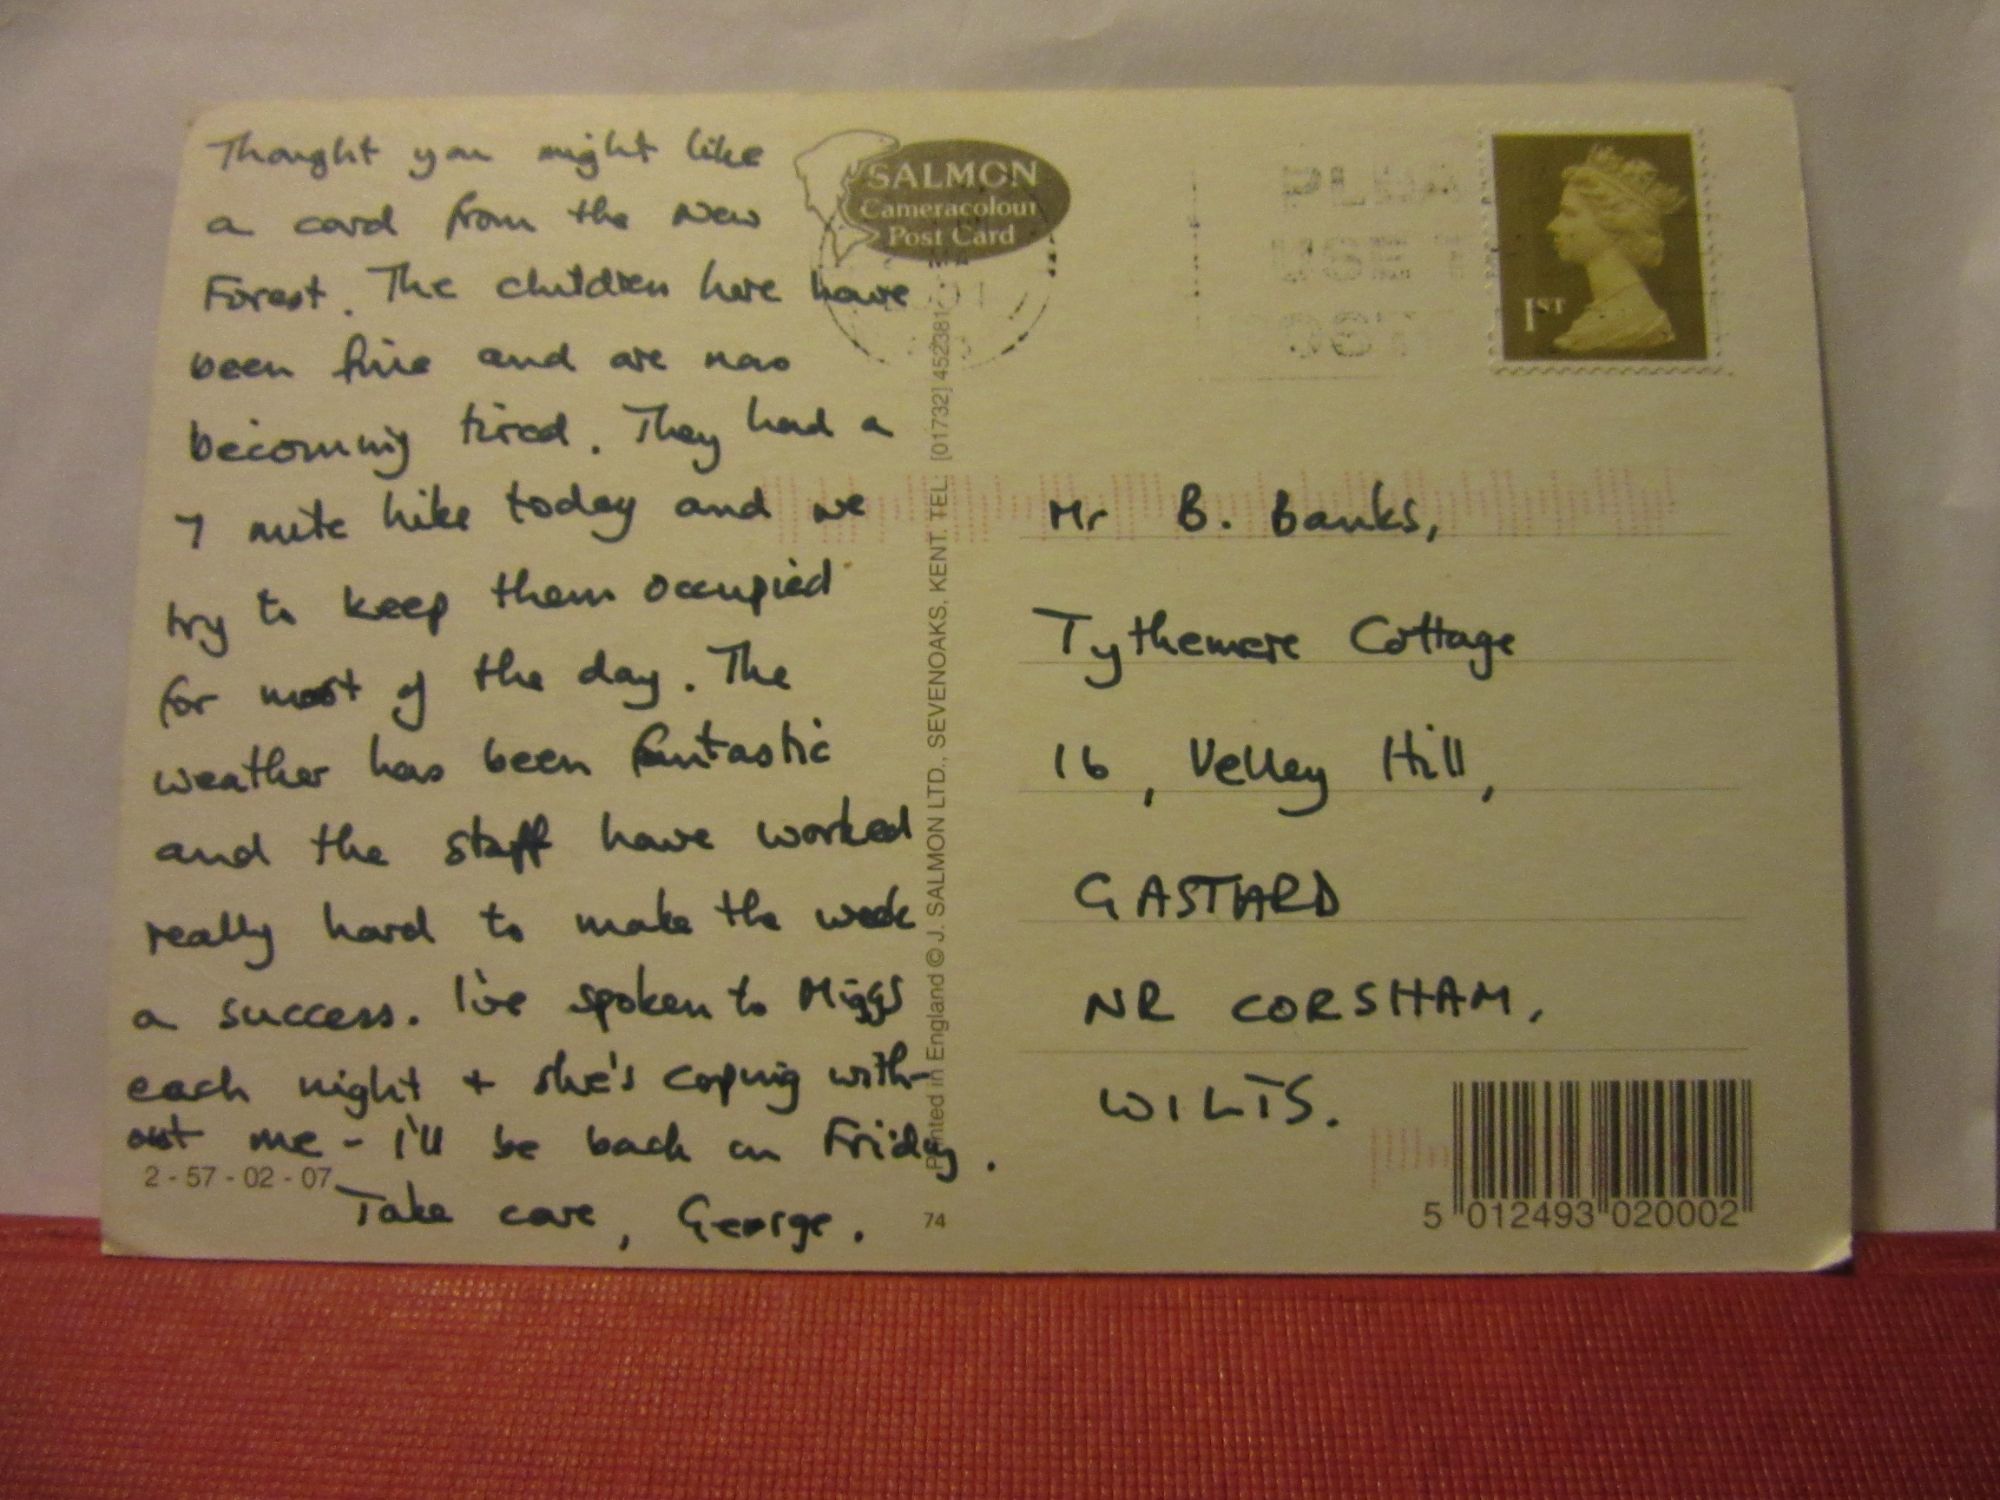 Thought you might like
a card from the New
Forest. The children here have
been fine and are now
becoming tired. They had a
7 mile hike today and we
try to keep them occupied
for most of the day. The
weather has been fantastic
and the staff have worked
really hard to make the week
a success. I've spoken to Miggs
each night + she's coping with-
out me - I'll be back on Friday.
Take care, George.
2 - 57 - 02 - 07
SALMON
Cameracolour
Post Card
Printed in England © J. SALMON LTD., SEVENOAKS, KENT. TEL: [01732] 452381
74
1ST
Mr B. Banks,
Tythemere Cottage
16, Velley Hill,
GASTARD
NR CORSHAM,
WILTS.
5 012493 020002